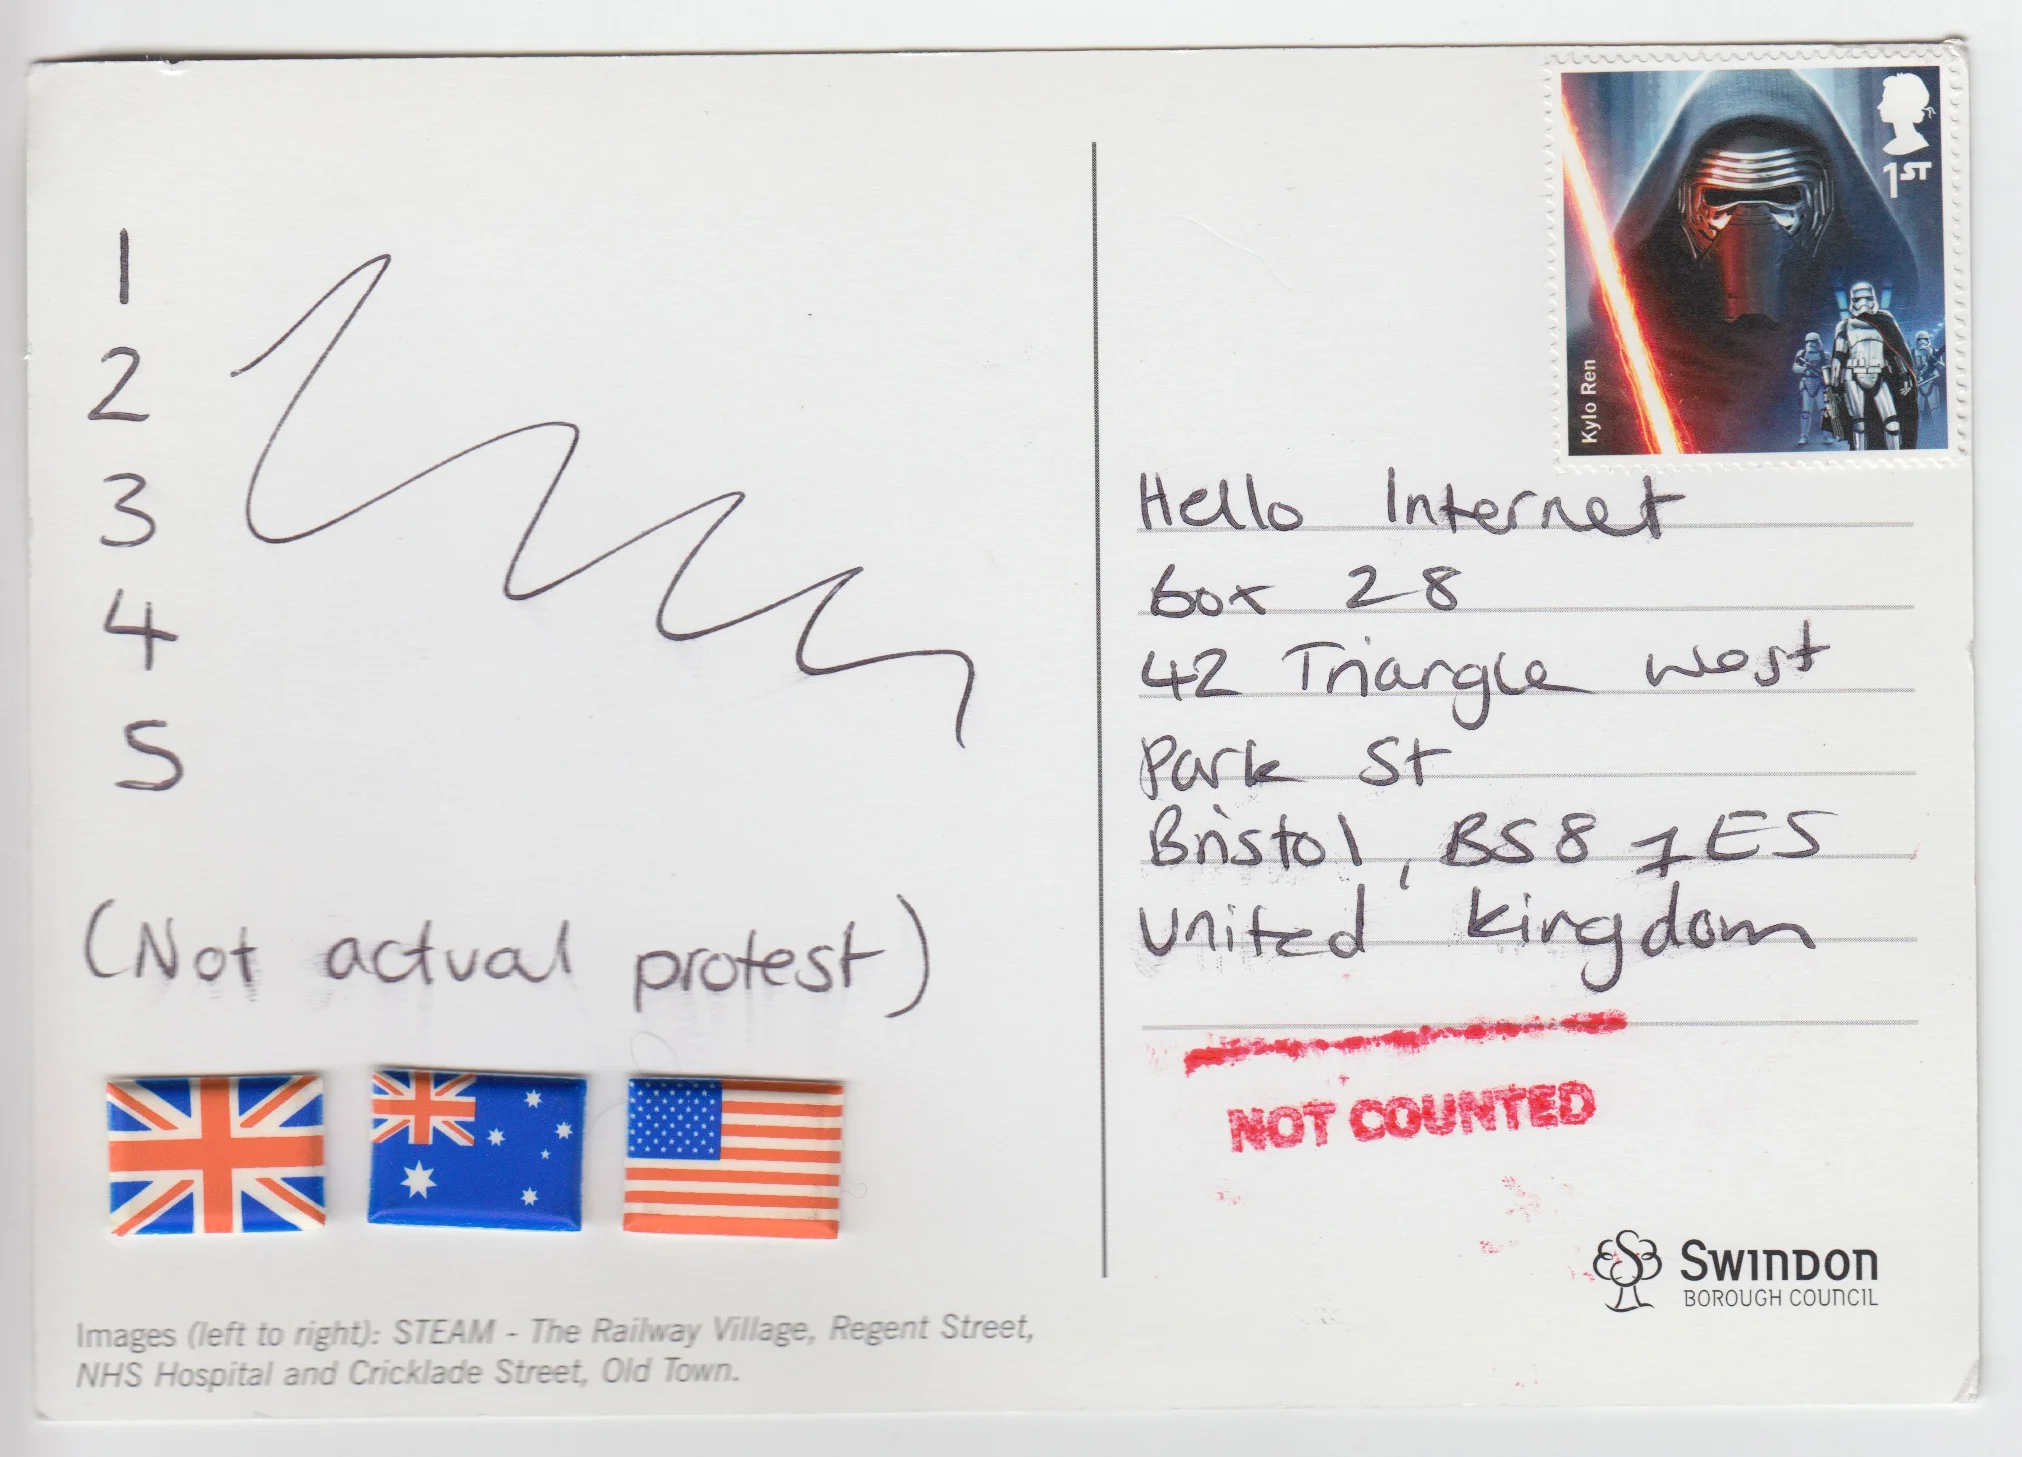 1
2
3
4
5
(Not actual protest)
Images (left to right): STEAM - The Railway Village, Regent Street,
NHS Hospital and Cricklade Street, Old Town.
1ST
Kylo Ren
Hello Internet
box 28
42 Triangle West
Park St
Bristol, BS8 1ES
United Kingdom
NOT COUNTED
SWINDON
BOROUGH COUNCIL